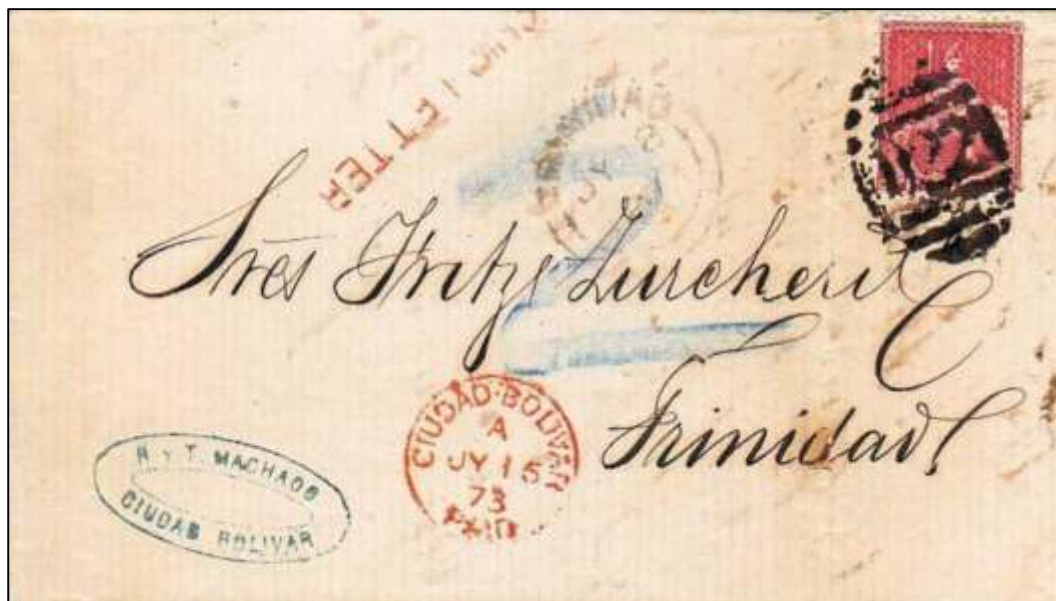 LETTER
TRINIDAD
JY
Sres Fritz Zurcher & C
Trinidad
CIUDAD BOLIVAR
A
JY 15
73
PAID
R Y T. MACHADO
CIUDAD BOLIVAR
2